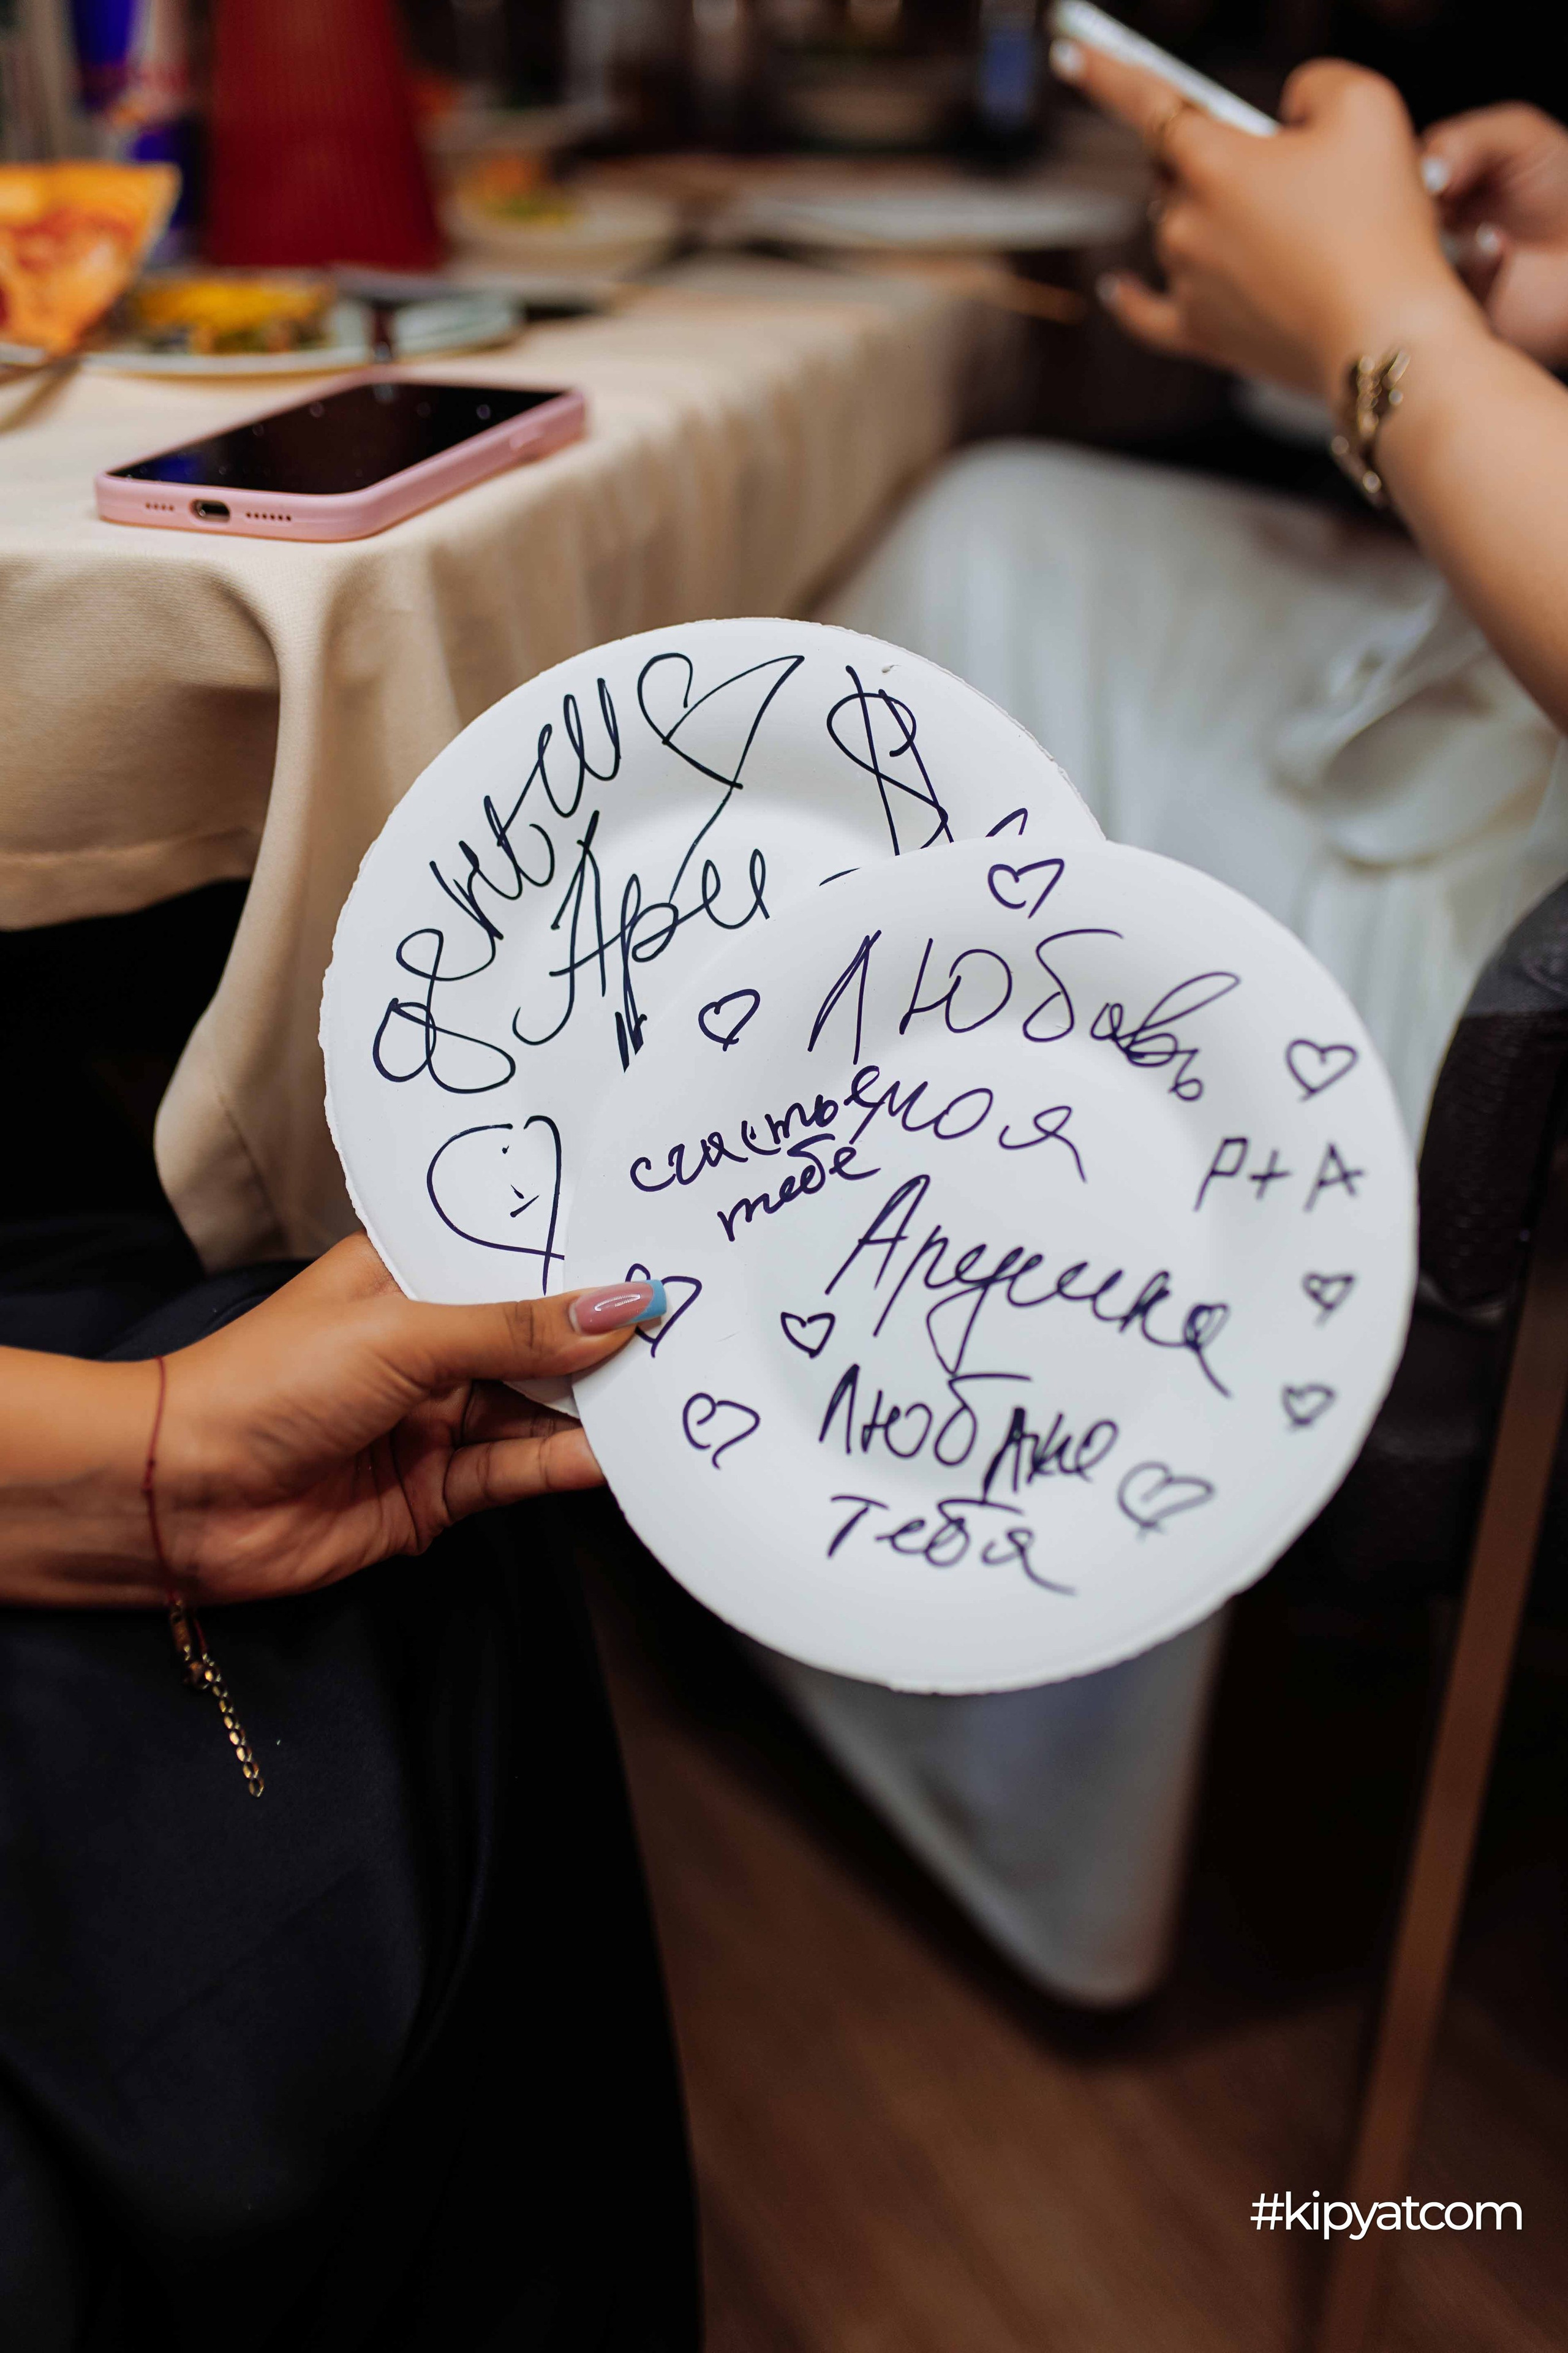 деньги
Ари
$
Любовь
моя
счастье
тебе
P + A
Аришка
Люблю
тебя
#kipyatcom